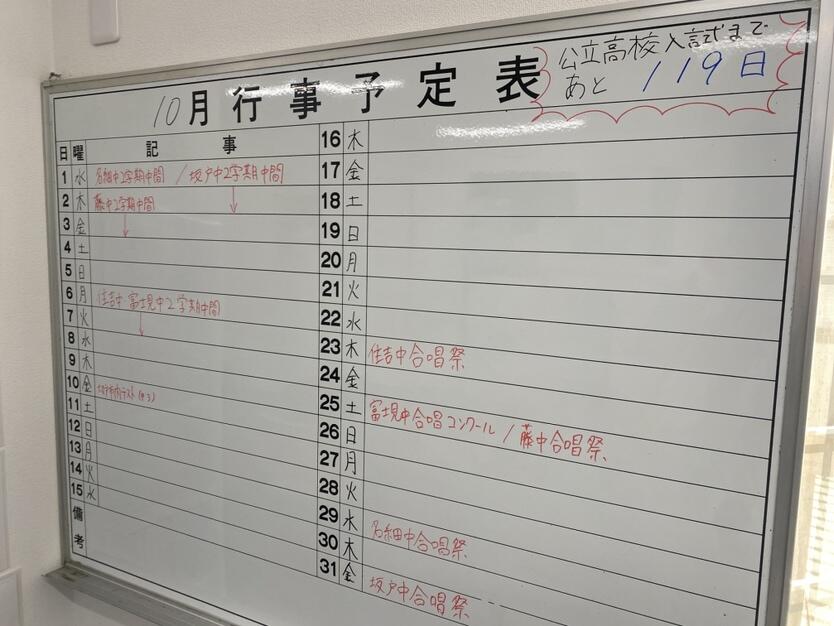 10月行事予定表
公立高校入試まで
あと 119日
日 曜 記事
1 水 名細中2学期中間 / 坂戸中2学期中間
2 木 藤中2学期中間 ↓
3 金 ↓
4 土
5 日
6 月 住吉中 富士見中2学期中間
7 火 ↓
8 水
9 木
10 金
11 土
12 日
13 月
14 火
15 水
備考
16 木
17 金
18 土
19 日
20 月
21 火
22 水
23 木 住吉中合唱祭
24 金
25 土 富士見中合唱コンクール / 藤中合唱祭
26 日
27 月
28 火
29 水 名細中合唱祭
30 木
31 金 坂戸中合唱祭